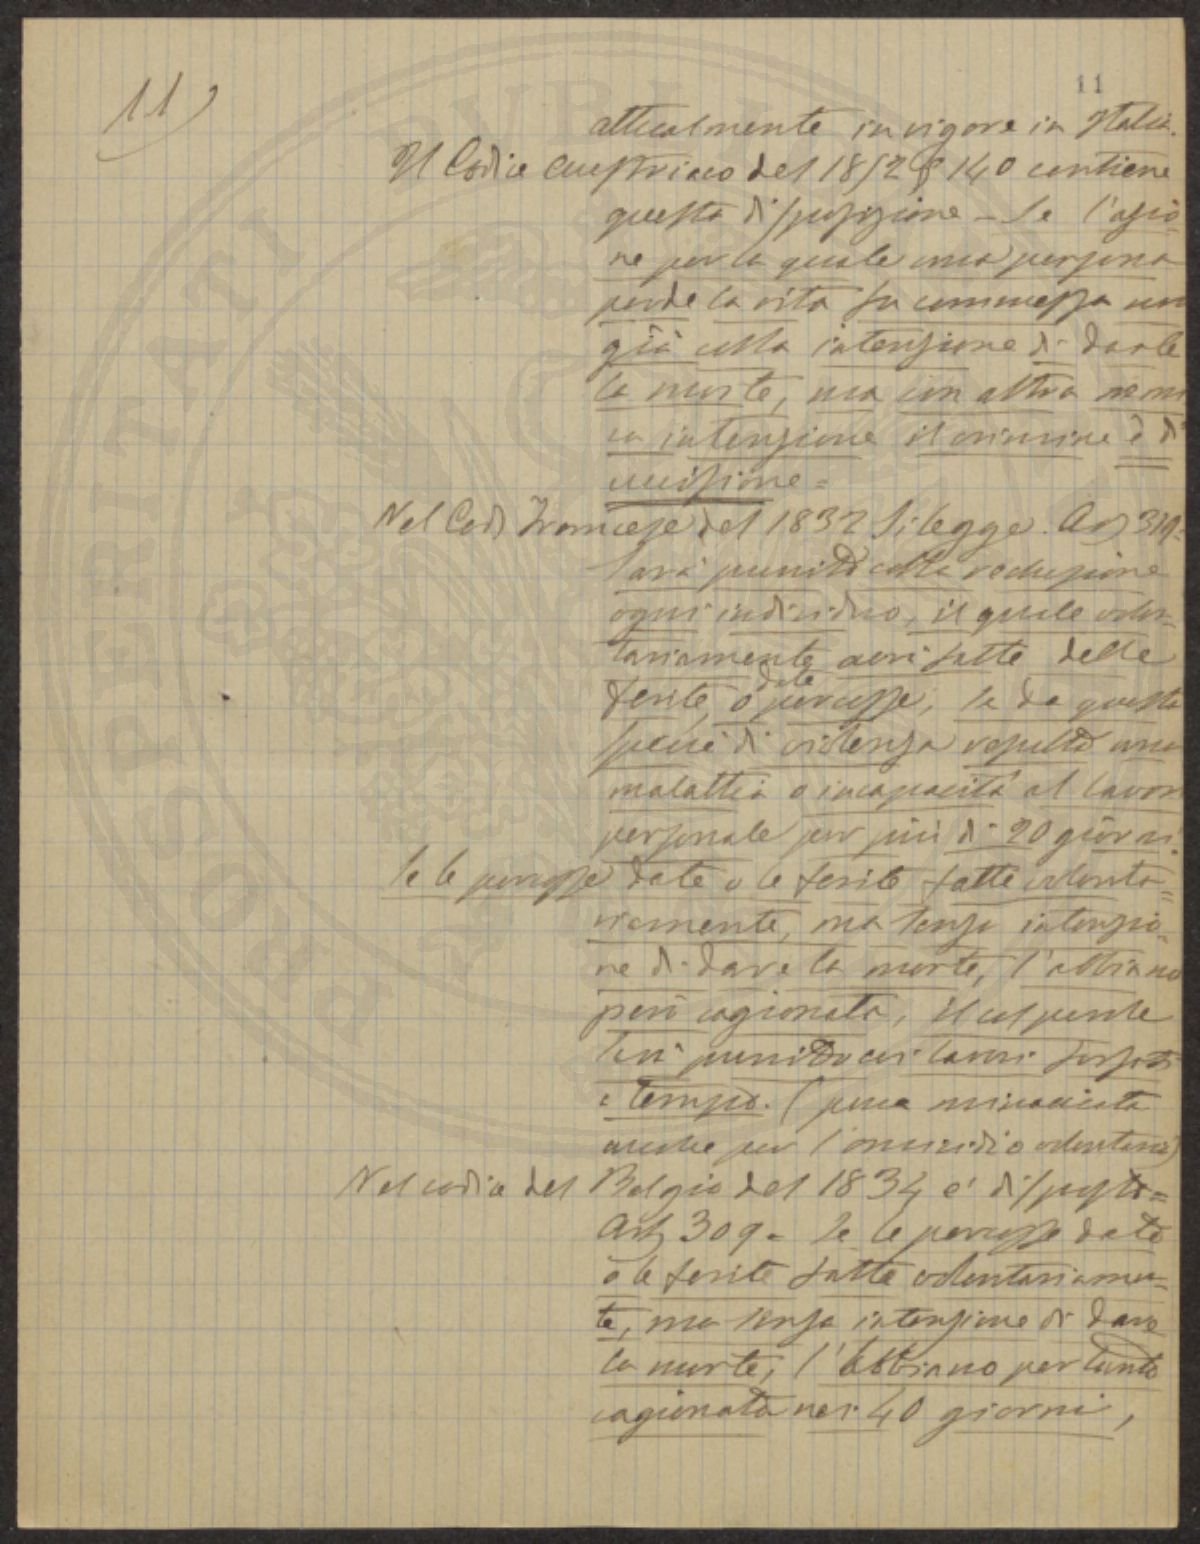 11)
11
attualmente in vigore in Italia.
Il Codice Austriaco del 1852 § 140 contiene
questa disposizione - Se l'azio-
ne per la quale una persona
perde la vita fu commessa non
già colla intenzione di darle
la morte, ma con altra nemi
ca intenzione il crimine è di
uccisione =
Nel Cod Francese del 1832 si legge. Art 319 =
Sarà punito colla reclusione
ogni individuo, il quale volon-
tariamente avrà fatte delle
date
ferite, o percosse, se da questa
specie di violenza risultò una
malattia o incapacità al lavoro
personale per più di 20 giorni.
Se le percosse date o le ferite fatte volonta=
riamente, ma senza intenzio-
ne di dare la morte, l'abbiano
però cagionata, il colpevole
sarà punito coi lavori forzati
a tempo. (pena minacciata
anche per l'omicidio volontario)
Nel codice del Belgio del 1834 è disposto =
Art 309 - Se le percosse date
o le ferite fatte volontariamen-
te, ma senza intenzione di dare
la morte, l'abbiano per tanto
cagionata nei 40 giorni,
PROSPERITATI PUBLI